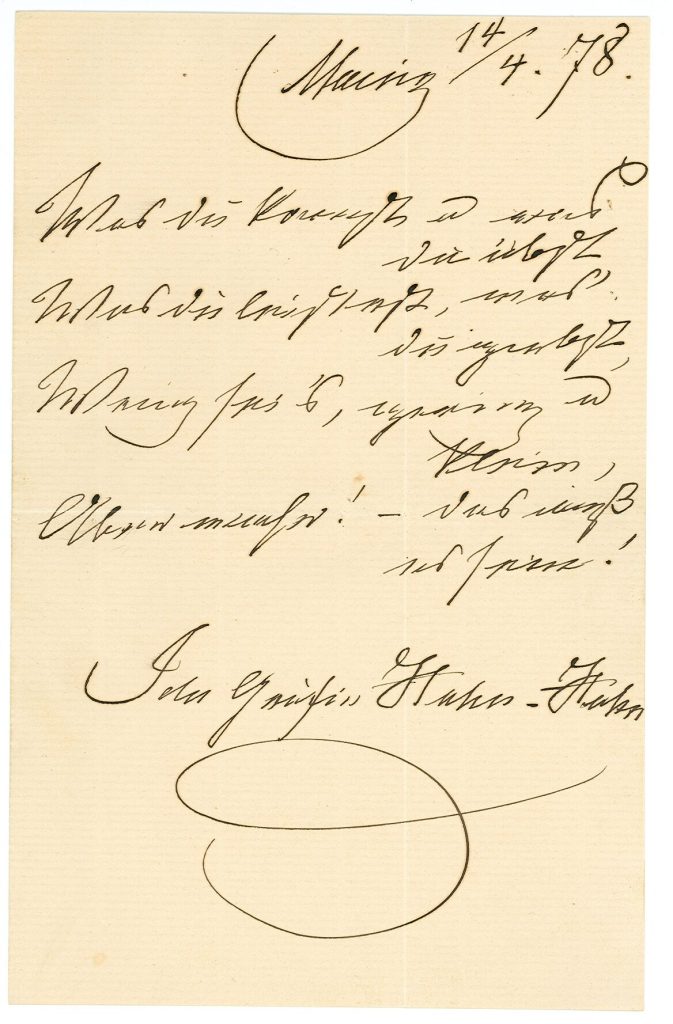 Mainz 14/4. 78.
Was du kannst u was
du übst
Was du leistest, was
du giebst,
Wenig sei's, gering u
klein,
Aber wahr! – das muß
es sein!
Ida Gräfin Hahn-Hahn